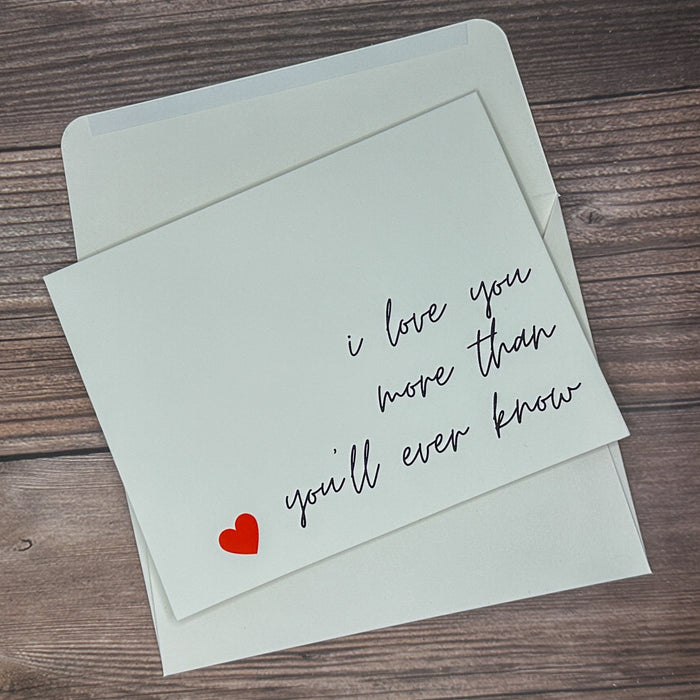 i love you
more than
you'll ever know